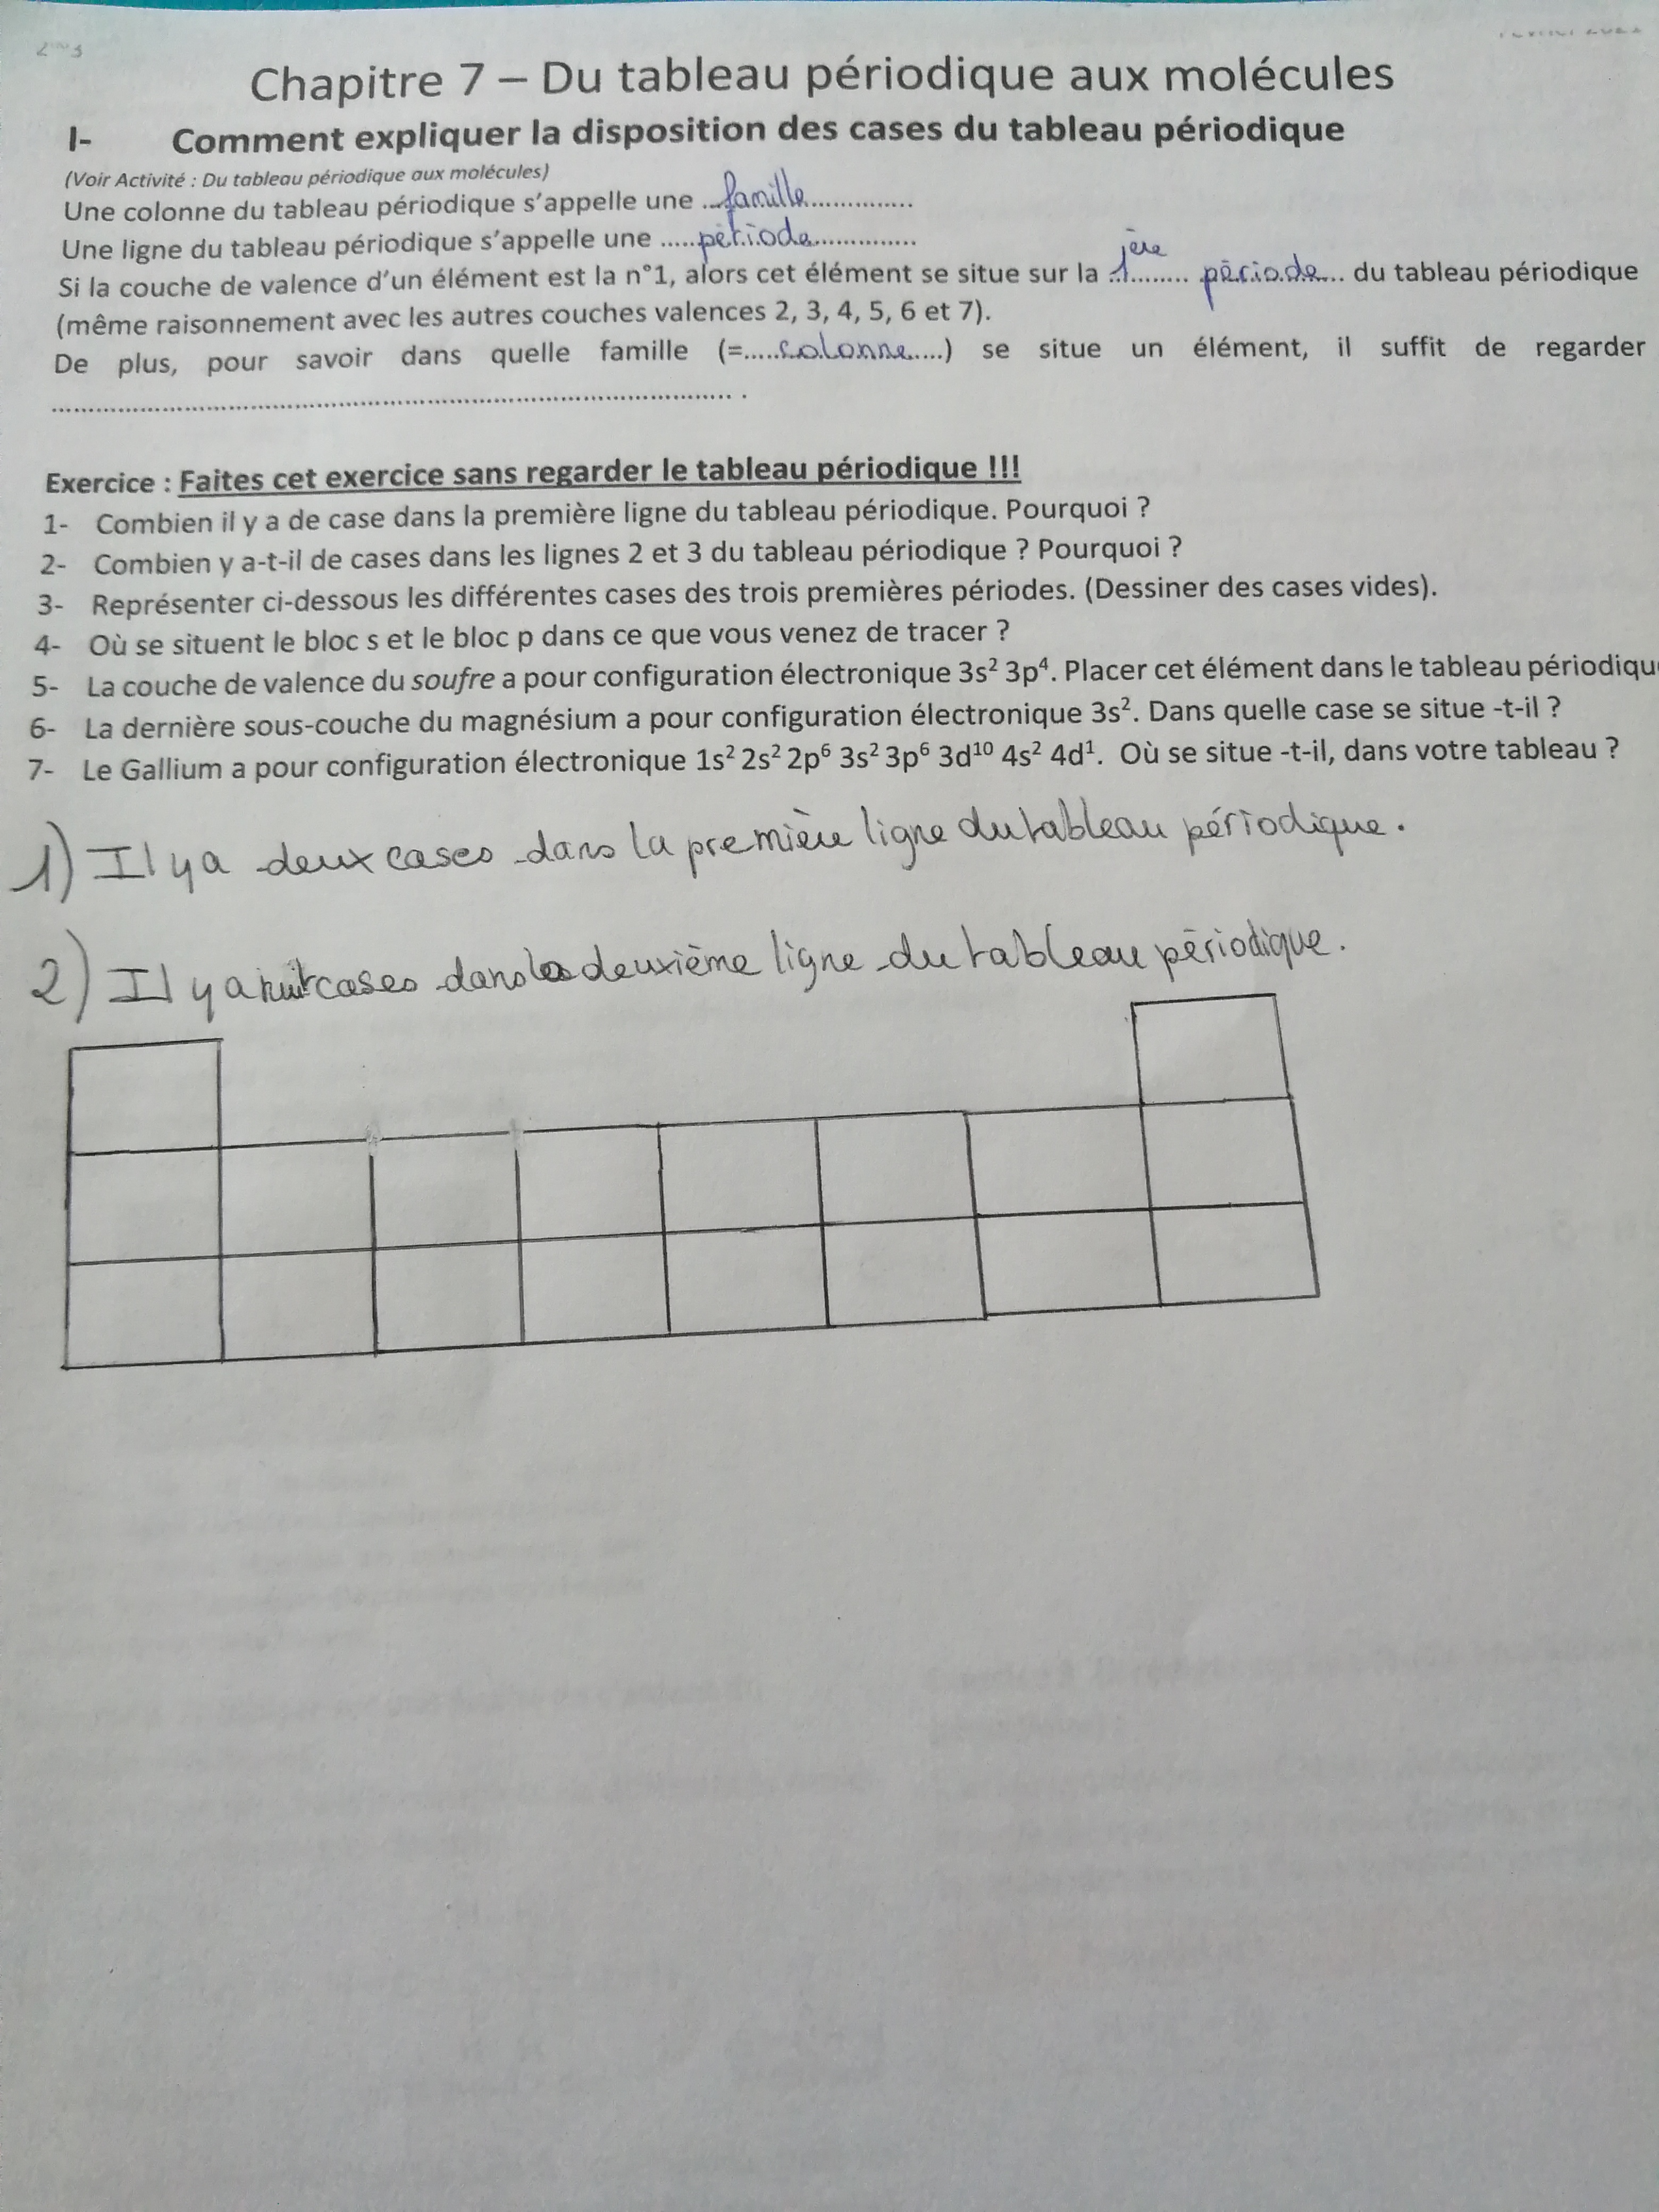 Chapitre 7 – Du tableau périodique aux molécules
I- Comment expliquer la disposition des cases du tableau périodique
(Voir Activité : Du tableau périodique aux molécules)
Une colonne du tableau périodique s'appelle une ...famille...............
Une ligne du tableau périodique s'appelle une .....période...............
Si la couche de valence d'un élément est la n°1, alors cet élément se situe sur la 1ère........ période... du tableau périodique
(même raisonnement avec les autres couches valences 2, 3, 4, 5, 6 et 7).
De plus, pour savoir dans quelle famille (=.....colonne.....) se situe un élément, il suffit de regarder
.................................................................................... .
Exercice : Faites cet exercice sans regarder le tableau périodique !!!
1- Combien il y a de case dans la première ligne du tableau périodique. Pourquoi ?
2- Combien y a-t-il de cases dans les lignes 2 et 3 du tableau périodique ? Pourquoi ?
3- Représenter ci-dessous les différentes cases des trois premières périodes. (Dessiner des cases vides).
4- Où se situent le bloc s et le bloc p dans ce que vous venez de tracer ?
5- La couche de valence du soufre a pour configuration électronique 3s² 3p⁴. Placer cet élément dans le tableau périodiqu
6- La dernière sous-couche du magnésium a pour configuration électronique 3s². Dans quelle case se situe -t-il ?
7- Le Gallium a pour configuration électronique 1s² 2s² 2p⁶ 3s² 3p⁶ 3d¹⁰ 4s² 4d¹. Où se situe -t-il, dans votre tableau ?
1) Il y a deux cases dans la première ligne du tableau périodique.
2) Il y a huit cases dans la deuxième ligne du tableau périodique.